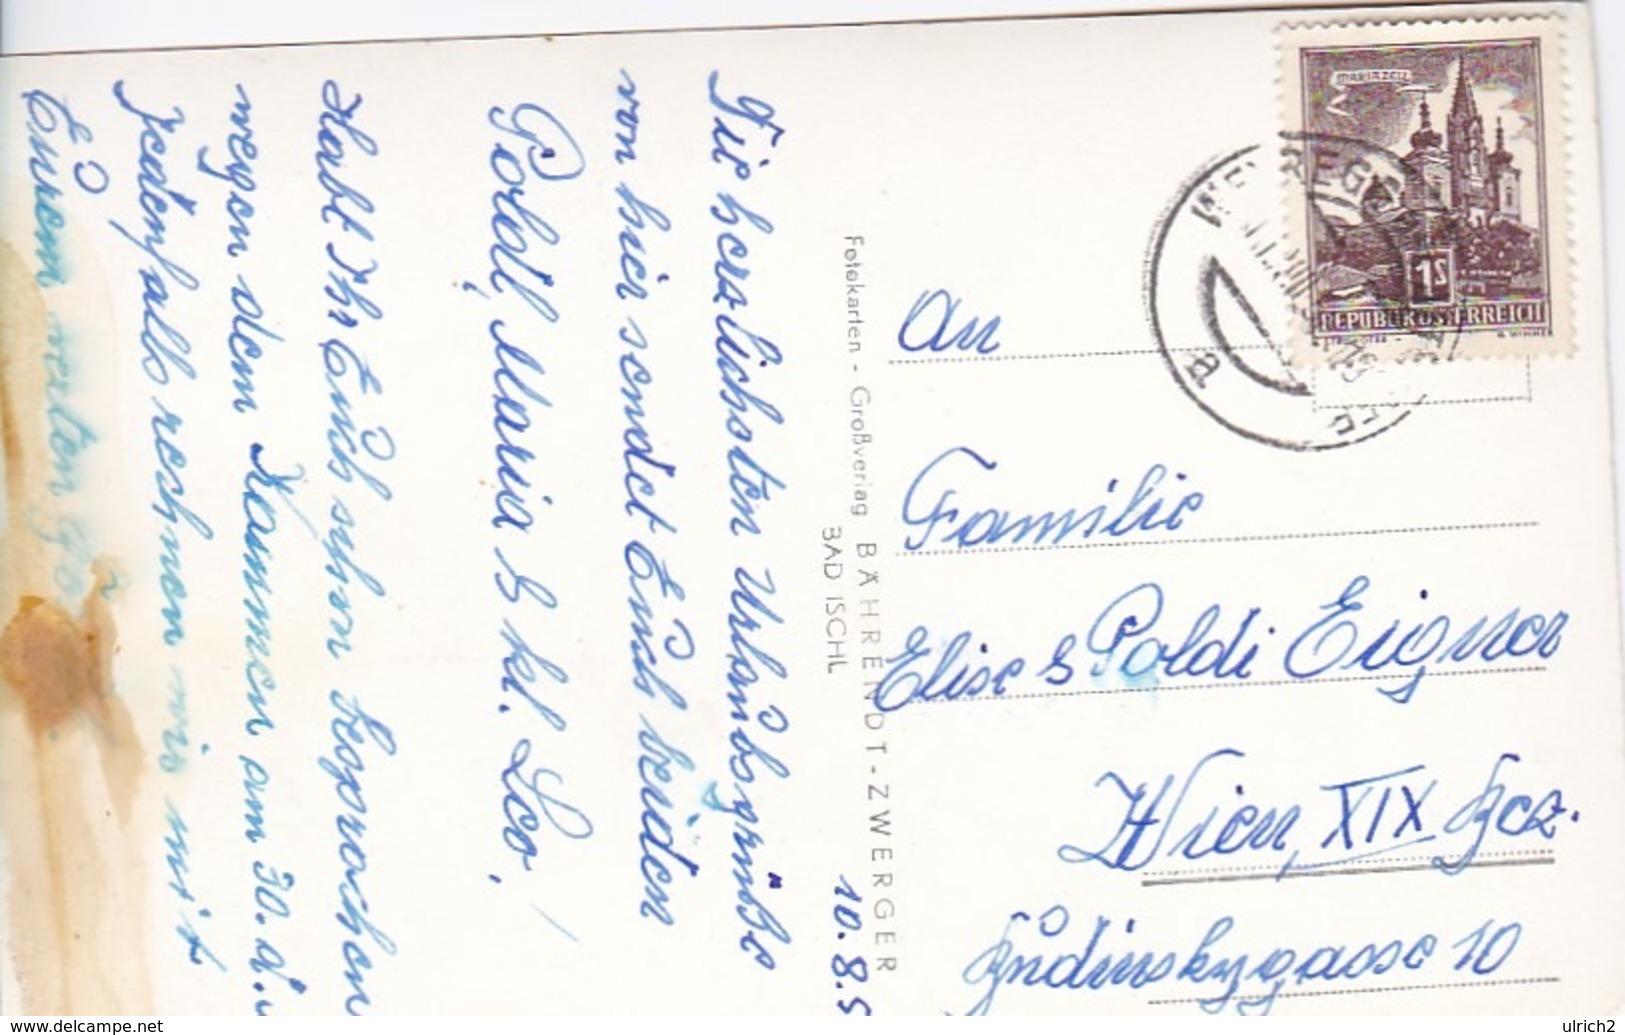 10.8.5
Die herzlichsten Urlaubsgrüße
von hier sendet Euch beiden
Poldl, Maria & kl. Leo.
Habt Ihr Euch schon besprochen
wegen dem Kommen am 30. d.
Jedenfalls rechnen wir mit
Eurem werten
Fotokarten - Großverlag BÄHRENDT-ZWERGER
BAD ISCHL
MARIAZELL
1S
REPUBLIK ÖSTERREICH
An
Familie
Elise & Poldi Eigner
Wien, XIX Bez.
10
www.delcampe.net
ulrich2